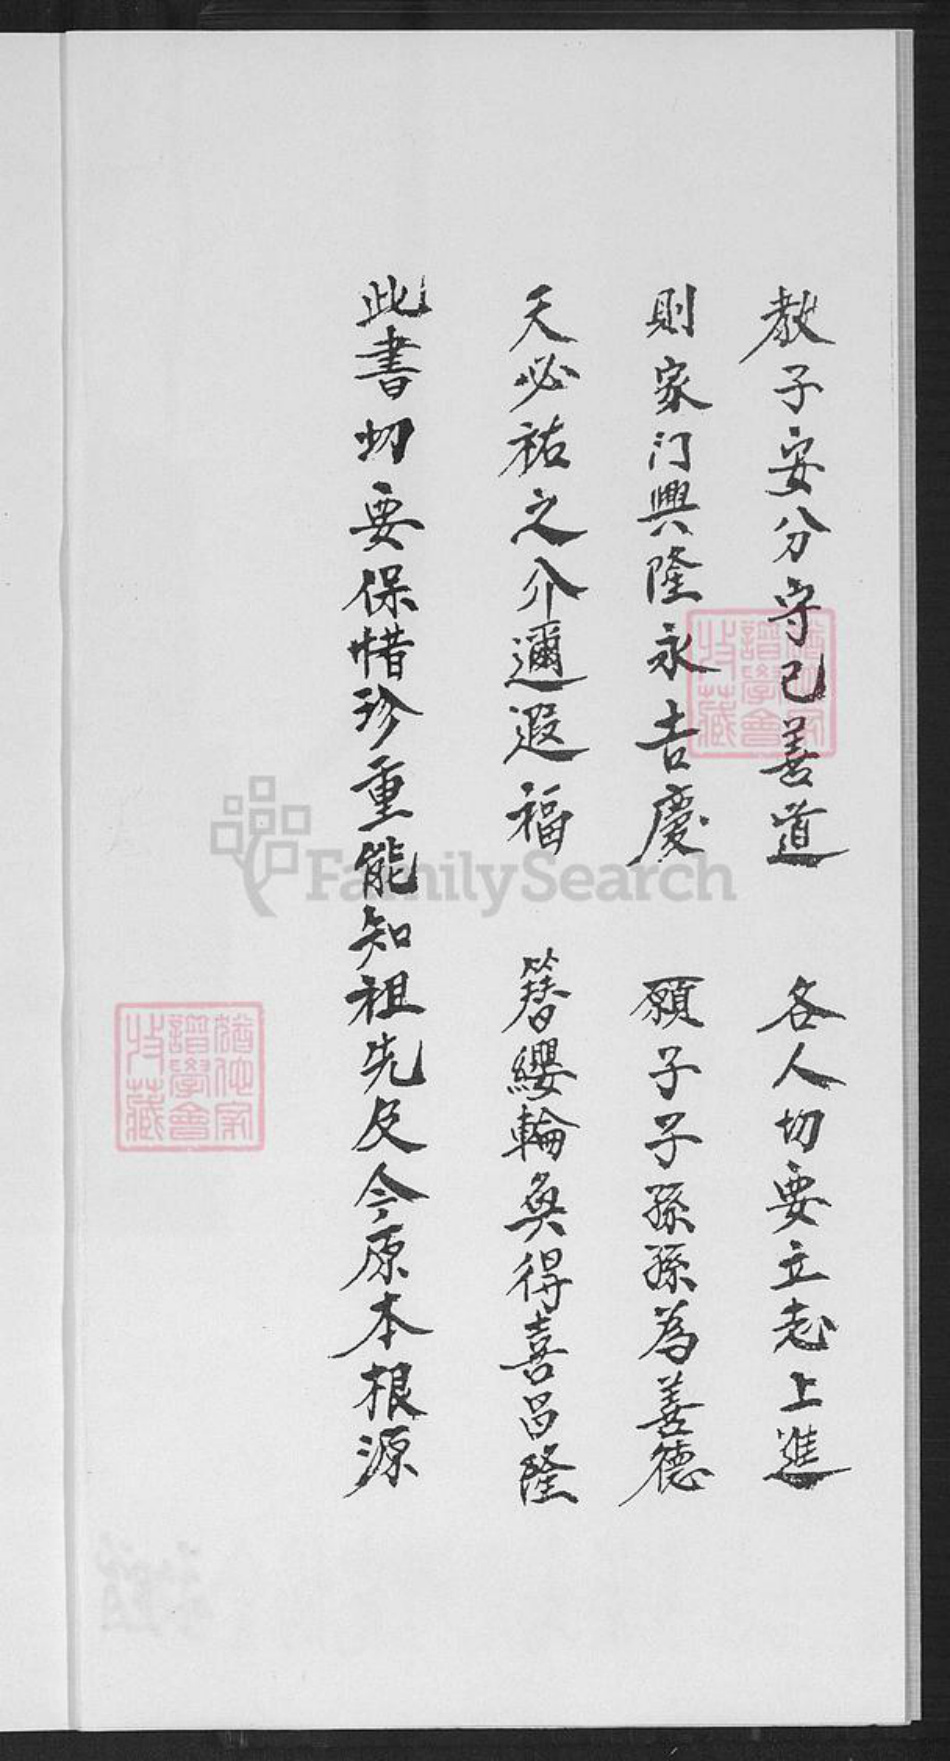 教子安分守己善道　各人切要立志上進
則家门興隆永吉慶　願子子孫孫為善德
天必祐之介邇遐福　簪纓輪奐得喜昌隆
此書切要保惜珍重能知祖先及今原本根源
譜學會
收藏
譜學會
收藏
FamilySearch